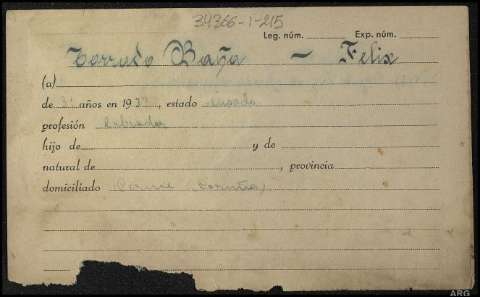 34366-1-215
Leg. núm. Exp. núm.
Torrado Baña — Felix
(a)
de 31 años en 1937, estado casado
profesión Labrador
hijo de y de
natural de , provincia
domiciliado (Coruña)
ARG